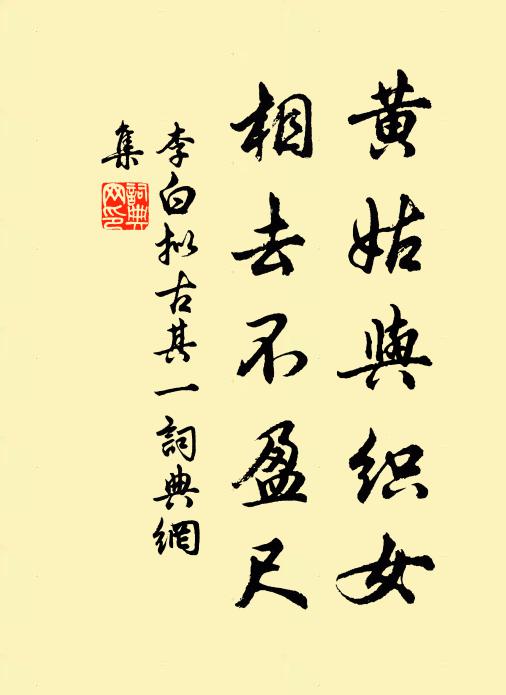 黄姑與织女
相去不盈尺
李白拟古其一詞典網
集
詞典
网印